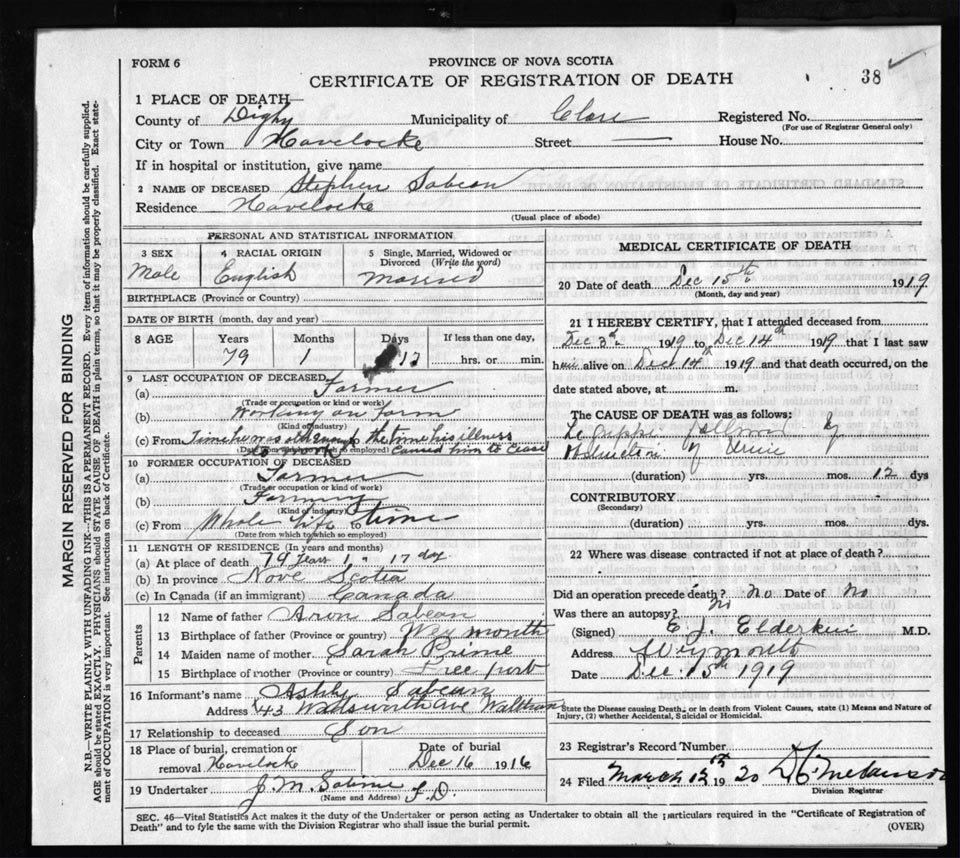 FORM 6
PROVINCE OF NOVA SCOTIA
CERTIFICATE OF REGISTRATION OF DEATH
38
1 PLACE OF DEATH
County of Digby Municipality of Clare Registered No.
(For use of Registrar General only)
City or Town Havelocke Street House No.
If in hospital or institution, give name
2 NAME OF DECEASED Stephen Sabean
Residence Havelocke
(Usual place of abode)
PERSONAL AND STATISTICAL INFORMATION
3 SEX 4 RACIAL ORIGIN 5 Single, Married, Widowed or Divorced (Write the word)
Male English Married
BIRTHPLACE (Province or Country)
DATE OF BIRTH (month, day and year)
8 AGE Years Months Days If less than one day,
79 1 17 hrs. or min.
9 LAST OCCUPATION OF DECEASED
(a) Farmer
(Trade or occupation or kind of work)
(b) Working on farm
(Kind of industry)
(c) From Time he was old enough to work the time his illness caused him to cease
(Date from which to which so employed)
10 FORMER OCCUPATION OF DECEASED
(a) Farmer
(Trade or occupation or kind of work)
(b) Farming
(Kind of industry)
(c) From Whole life to time
(Date from which to which so employed)
11 LENGTH OF RESIDENCE (In years and months)
(a) At place of death 79 years 1 " 17 day
(b) In province Nove Scotia
(c) In Canada (if an immigrant) Canada
Parents
12 Name of father Aron Sabean
13 Birthplace of father (Province or country) Weymouth
14 Maiden name of mother Sarah Prime
15 Birthplace of mother (Province or country) Free port
16 Informant's name Ashby Sabean
Address 43 Wadsworth Ave Waltham
17 Relationship to deceased Son
18 Place of burial, cremation or removal Havelocke Date of burial Dec 16 1916
19 Undertaker J. M. Sabine F.D.
(Name and Address)
MEDICAL CERTIFICATE OF DEATH
20 Date of death Dec 15th 1919
(Month, day and year)
21 I HEREBY CERTIFY, that I attended deceased from
Dec 3rd 1919 to Dec 14th 1919 that I last saw
him alive on Dec 14th 1919 and that death occurred, on the
date stated above, at m.
The CAUSE OF DEATH was as follows:
La Grippe followed by
Retention of Urine
(duration) yrs. mos. 12 dys
CONTRIBUTORY
(Secondary)
(duration) yrs. mos. dys.
22 Where was disease contracted if not at place of death?
Did an operation precede death? No Date of No
Was there an autopsy? No
(Signed) E. J. Elderkin M.D.
Address Weymouth
Date Dec. 15th 1919
State the Disease causing Death, or in death from Violent Causes, state (1) Means and Nature of
Injury, (2) whether Accidental, Suicidal or Homicidal.
23 Registrar's Record Number
24 Filed March 12th 1920
Division Registrar
SEC. 46—Vital Statistics Act makes it the duty of the Undertaker or person acting as Undertaker to obtain all the particulars required in the "Certificate of Registration of
Death" and to fyle the same with the Division Registrar who shall issue the burial permit.
(OVER)
MARGIN RESERVED FOR BINDING
N.B.—WRITE PLAINLY WITH UNFADING INK—THIS IS A PERMANENT RECORD. Every item of information should be carefully supplied.
AGE should be stated EXACTLY. PHYSICIANS should STATE CAUSE OF DEATH in plain terms, so that it may be properly classified. Exact statement of OCCUPATION is very important. See instructions on back of Certificate.